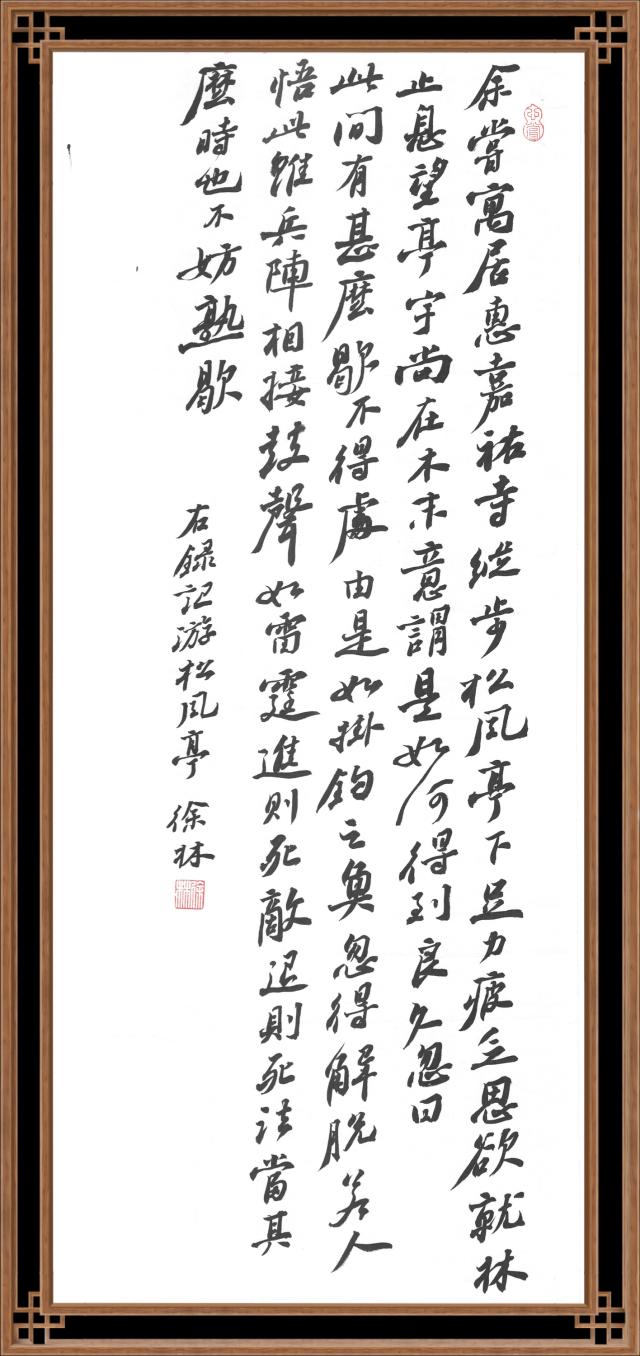 余嘗寓居惠嘉祐寺縱步松風亭下足力疲乏思欲就林
止息望亭宇尚在木末意謂是如何得到良久忽曰
此間有甚麼歇不得處由是如掛鈎之魚忽得解脫若人
悟此雖兵陣相接鼓聲如雷霆進則死敵退則死法當其
麼時也不妨熟歇
右録記游松風亭 徐林
徐林